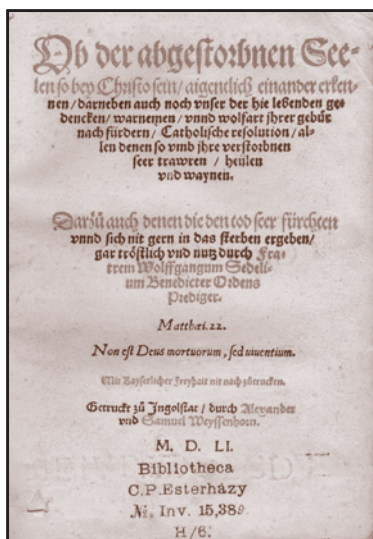 Ob der abgestorbnen See-
len so bey Christo sein / aigentlich einander erken-
nen / darneben auch noch vnser der hie lebenden ge-
dencken / warnemen / vnnd wolfart jhrer gebür
nach fürdern / Catholische resolution / al-
len denen so vmb jhre verstorbnen
seer trawren / heülen
vnd waynen.
Darzů auch denen die den tod seer fürchten
vnnd sich nit gern in das sterben ergeben /
gar tröstlich vnd nutz durch Fra-
trem Wolffgangum Sedeli-
um Benedicter Ordens
Prediger.
Matthæi. 22.
Non est Deus mortuorum, sed viuentium.
Mit Kayserlicher Freyhait nit nach zůtrucken.
Getruckt zů Jngolstat / durch Alexander
vnd Samuel Weyssenhorn.
M. D. LI.
Bibliotheca
C.P. Esterházy
№. Inv. 15,389
H/6.